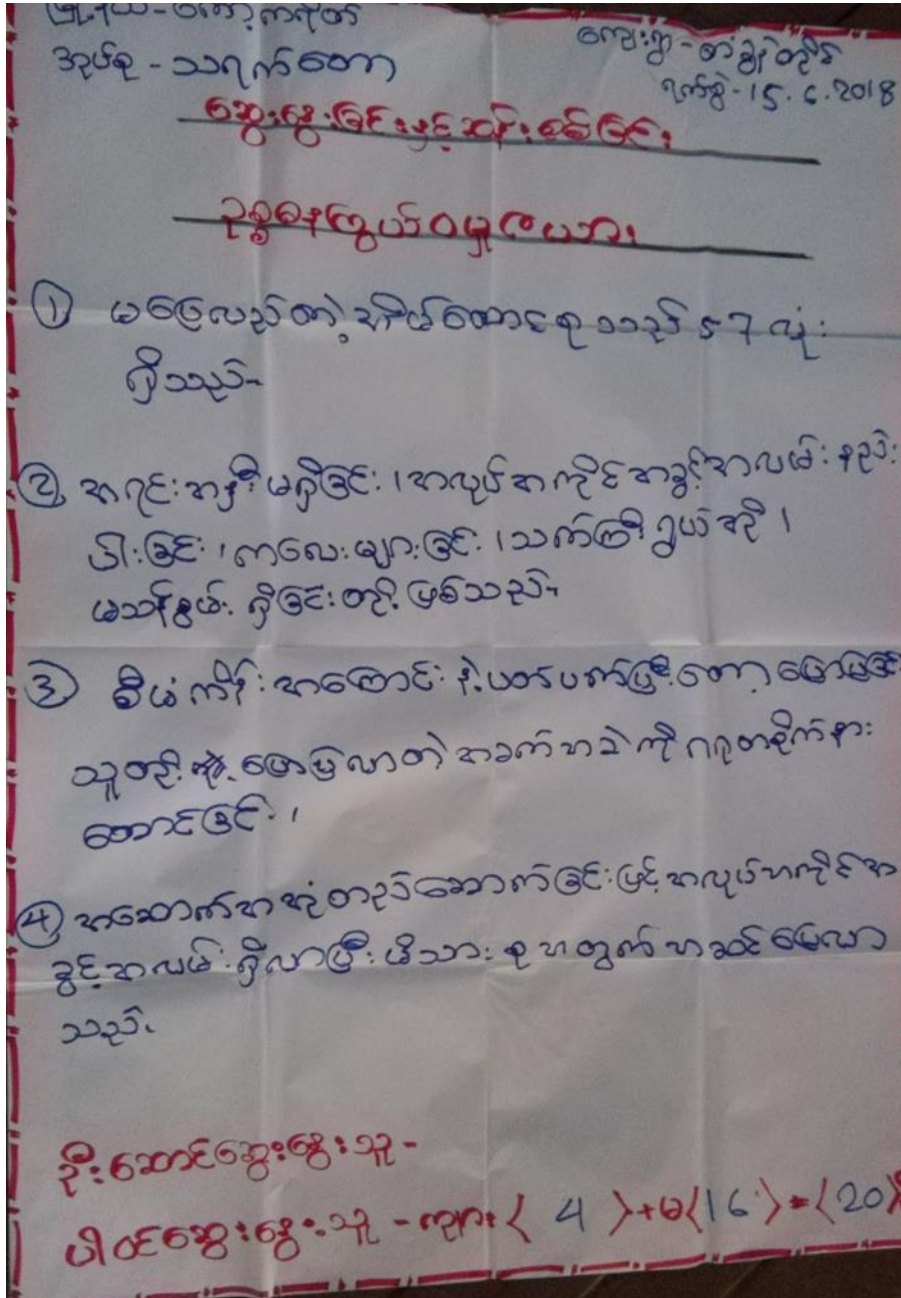 မြို့နယ် - ကော့ကရိတ်
အုပ်စု - သရက်တော
ကျေးရွာ - တံခွန်တိုင်
ရက်စွဲ - 15.6.2018
ဆွေးနွေးခြင်းနှင့်ဆန်းစစ်ခြင်း
ဥစ္စာနေကြွယ်ဝမှုဇယား
① မပြေလည်တဲ့အိမ်ထောင်စုသည် 57 လုံး
ရှိသည်။
② အရင်းအနှီးမရှိခြင်း၊ အလုပ်အကိုင်အခွင့်အလမ်း နည်း
ပါးခြင်း၊ ကလေးများခြင်း၊ သက်ကြီးရွယ်အို၊
မသန်စွမ်း ရှိခြင်းတို့ ဖြစ်သည်။
③ စီမံကိန်းအကြောင်းနဲ့ပတ်သက်ပြီးတော့ပြောပြခြင်း
သူတို့ ပြောပြလာတဲ့ အခက်အခဲကို ဂရုတစိုက်နား
ထောင်ခြင်း၊
④ အဆောက်အအုံတည်ဆောက်ခြင်းဖြင့် အလုပ်အကိုင်အ
ခွင့်အလမ်းရှိလာပြီး မိသားစုအတွက် အဆင်ပြေလာ
သည်။
ဦးဆောင်ဆွေးနွေးသူ -
ပါဝင်ဆွေးနွေးသူ - ကျား ⟨ 4 ⟩ + မ ⟨ 16 ⟩ = ⟨ 20 ⟩